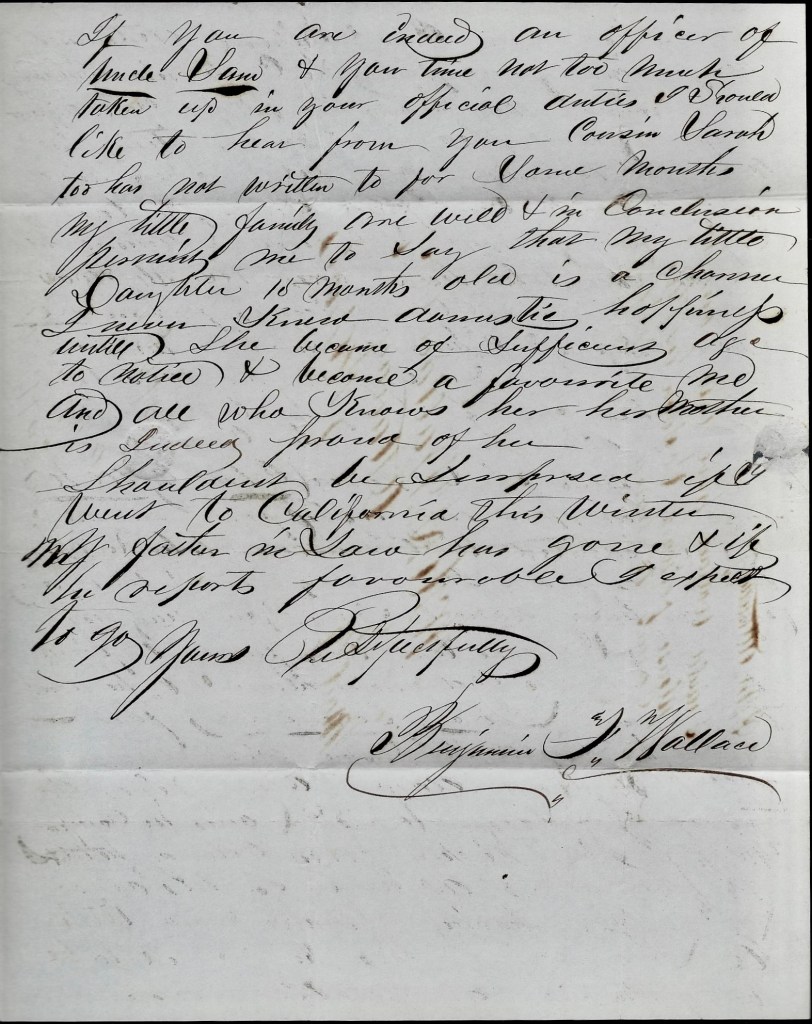 If you are indeed an officer of
uncle Sam & you time not too much
taken up in your official duties I Should
like to hear from you Cousin Sarah
too has not written to for Some months
my little family are well & in Conclusion
permit me to Say that my little
Daughter 18 months old is a Charmer
I never Knew domestic happiness
untill She became of Sufficient age
to notice & become a favourite me
And all who Knows her her Mother
is Indeed proud of her
Shouldent be Surprised if I
went to California this Winter
My father in Law has gone & if
he reports favourable I expect
to go
Yours Respectfully
Benjamin Wallace